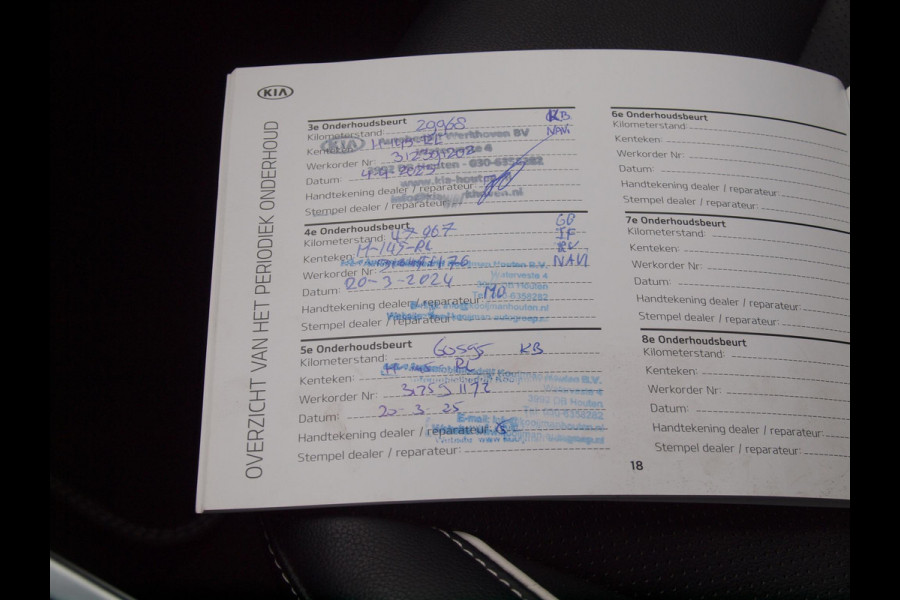 KIA
OVERZICHT VAN HET PERIODIEK ONDERHOUD
3e Onderhoudsbeurt
Kilometerstand: 29968 KB
Kenteken: NAVI
Werkhoven BV
Werkorder Nr:
3992 DB Houten - 030-6358282
Datum:
www.kia-houten.nl
Handtekening dealer / reparateur:
Stempel dealer / reparateur:
4e Onderhoudsbeurt GB
Kilometerstand: 47967 IF
Kenteken: H-145-RL RV
Werkorder Nr: NAVI
Houten B.V.
Datum: 20-3-2024
3992 DB Houten
Handtekening dealer / reparateur: MO
Stempel dealer / reparateur:
5e Onderhoudsbeurt
Kilometerstand: 60595 KB
Kenteken: H-145 RL
Houten B.V.
Werkorder Nr: 31259 1172
3992 DB Houten
Datum: 20-3-25
Tel: 030-6358282
Handtekening dealer / reparateur:
Stempel dealer / reparateur:
6e Onderhoudsbeurt
Kilometerstand:
Kenteken:
Werkorder Nr:
Datum:
Handtekening dealer / reparateur:
Stempel dealer / reparateur:
7e Onderhoudsbeurt
Kilometerstand:
Kenteken:
Werkorder Nr:
Datum:
Handtekening dealer / reparateur:
Stempel dealer / reparateur:
8e Onderhoudsbeurt
Kilometerstand:
Kenteken:
Werkorder Nr:
Datum:
Handtekening dealer / reparateur:
Stempel dealer / reparateur:
18